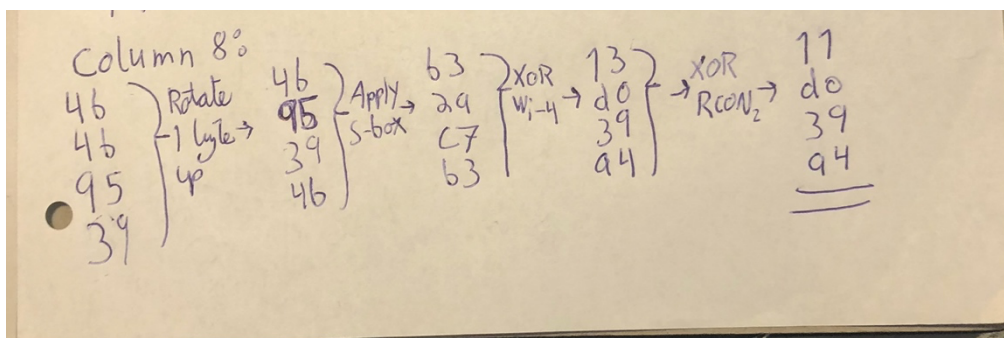 Column 8:
4b
4b
95
39
Rotate
1 byte →
up
4b
95
39
4b
Apply →
S-box
b3
2a
C7
b3
XOR
Wi-4 →
13
d0
39
a4
→ XOR
RCON2 →
11
d0
39
a4